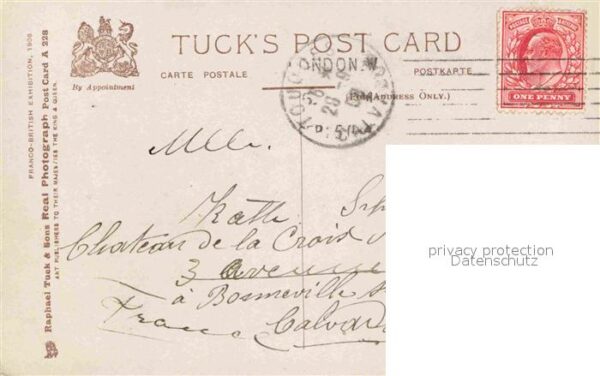 TUCK'S POST CARD
CARTE POSTALE
POSTKARTE
By Appointment
(For Address Only.)
LONDON.W.
POSTAGE REVENUE
ONE PENNY
FRANCO-BRITISH EXHIBITION, 1908
Raphael Tuck & Sons Real Photograph Post Card A 228
ART PUBLISHERS TO THEIR MAJESTIES THE KING & QUEEN.
Mlle.
Kath
Chateau de la Croix
3 avenue
à Bonneville s
France Calvad
privacy protection
Datenschutz